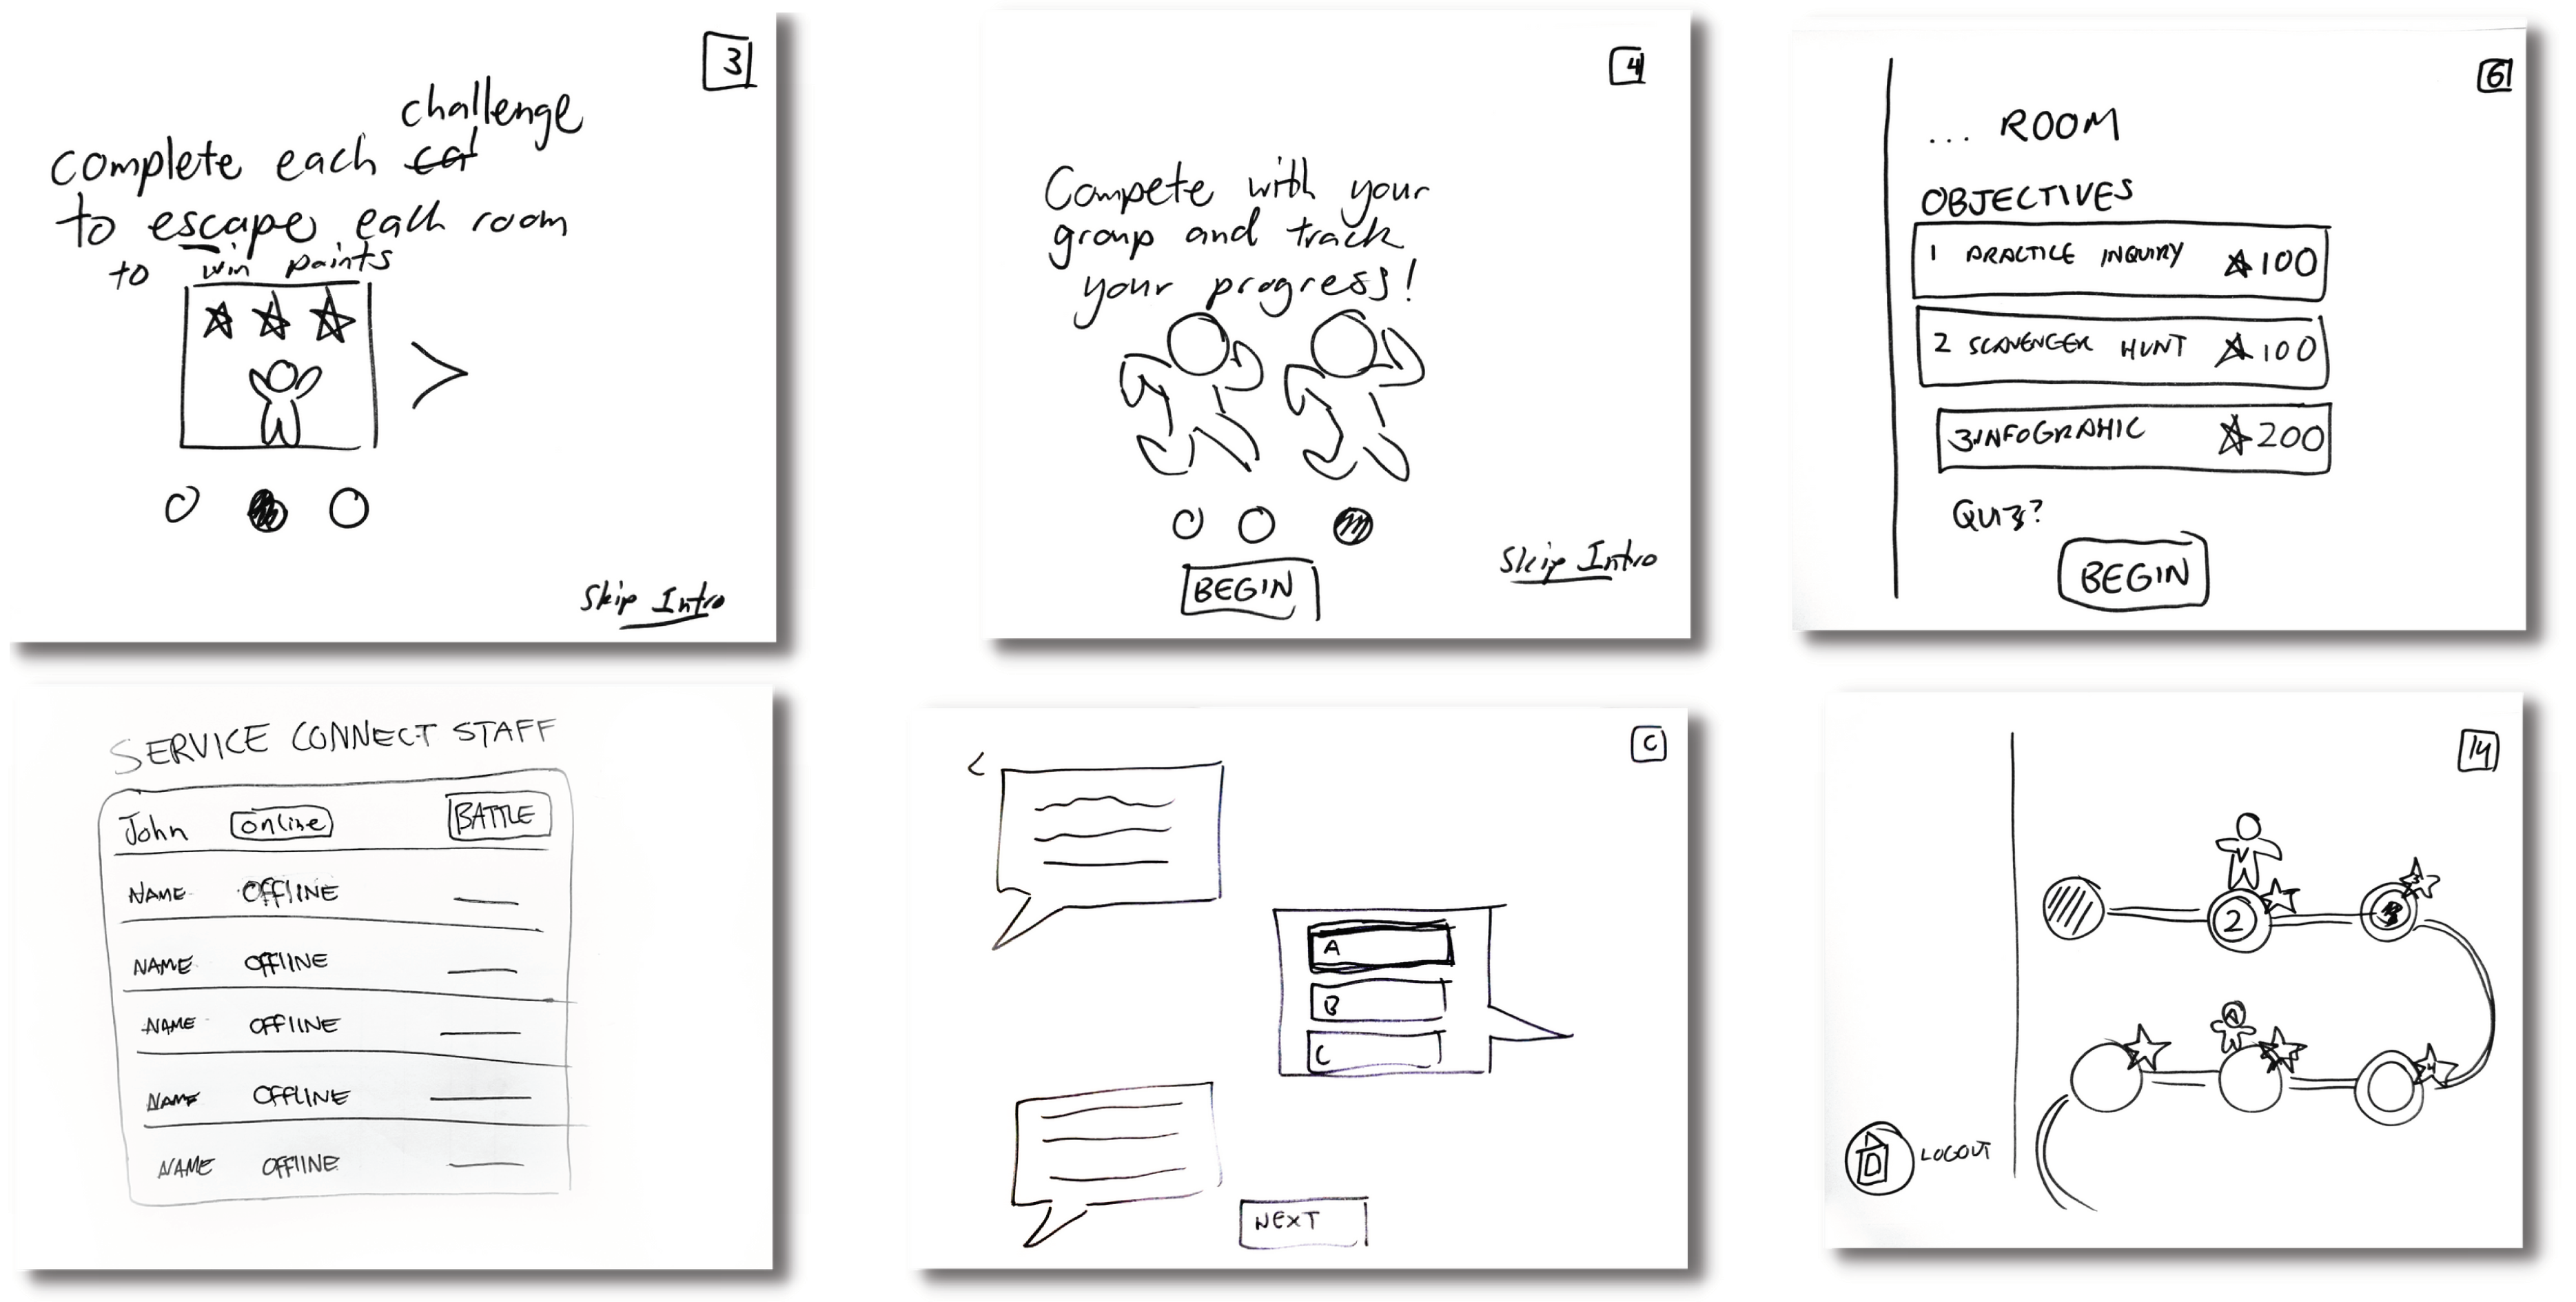 3
challenge
complete each cal
to escape each room
to win points
Skip Intro
4
Compete with your
group and track
your progress!
BEGIN
Skip Intro
6
... ROOM
OBJECTIVES
1 PRACTICE INQUIRY 100
2 SCAVENGER HUNT 100
3 INFOGRAHIC 200
QUIZ?
BEGIN
SERVICE CONNECT STAFF
John online BATTLE
NAME OFFLINE
NAME OFFLINE
NAME OFFLINE
NAME OFFLINE
NAME OFFLINE
C
<
A
B
C
NEXT
14
2
LOGOUT